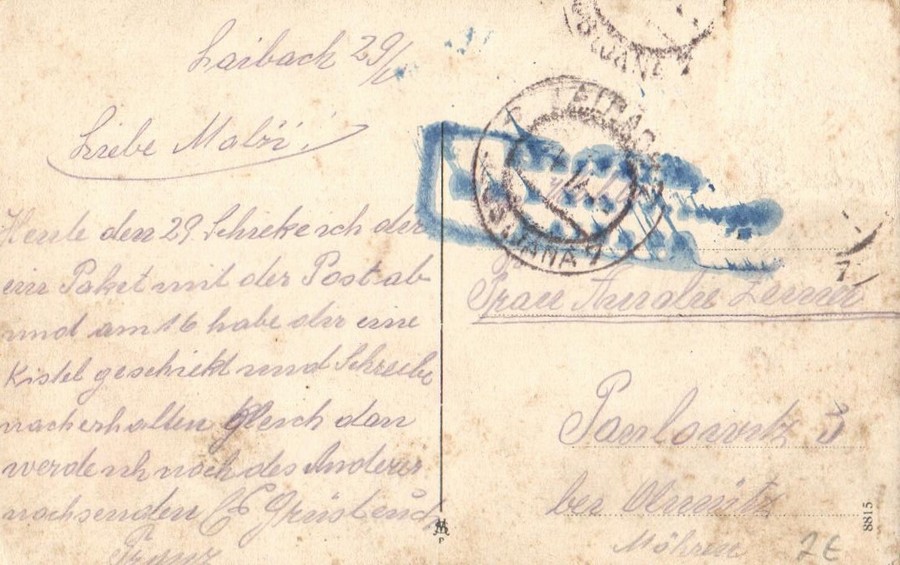 Laibach 29/
Liebe Malzi!
Heute den 29. Schicke ich der
ein Paket mit der Post ab
und am 16 habe dir eine
Kistel geschickt und Schreibe
nach erhalten gleich dan
werde ich noch des Anderes
nachsenden Es Grüst euch
Franz
LAIBACH
LJUBLJANA 1
An
Frau
Paulowitz 3
bei Olmütz
Möhren
8815
2€